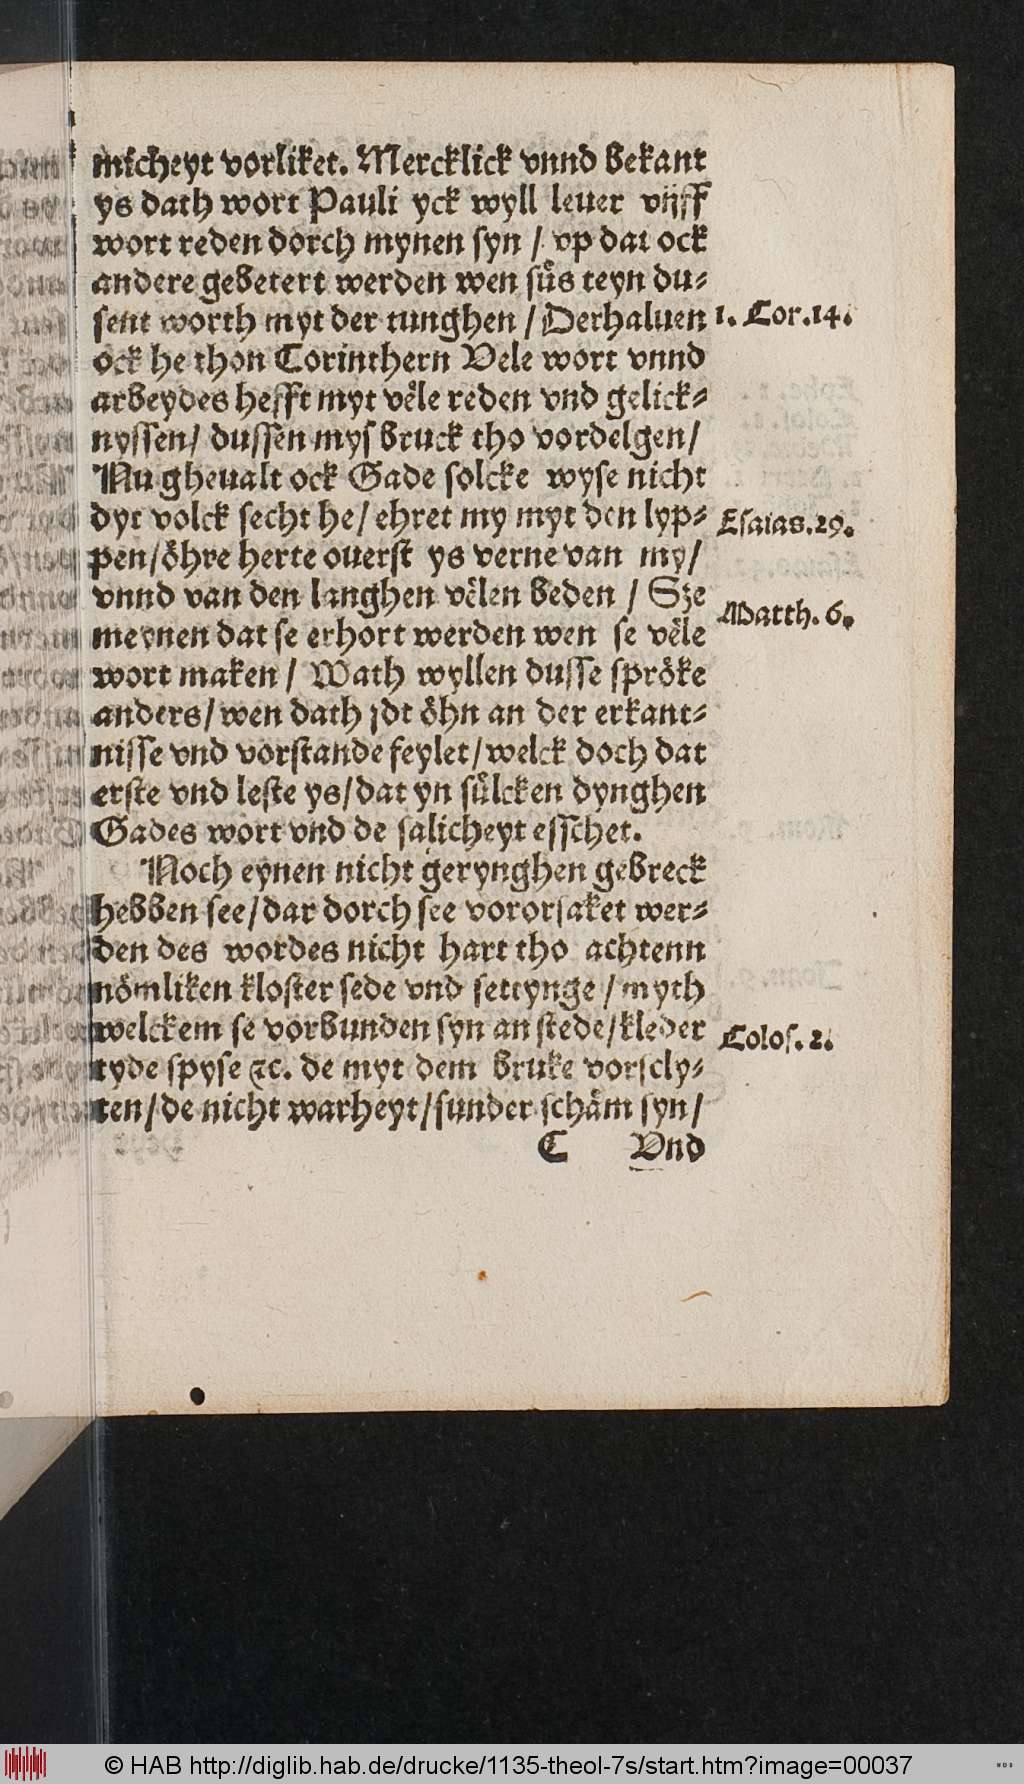 micheyt vorliket. Mercklick vnnd bekant
ys dath wort Pauli yck wyll leuer vijff
wort reden dorch mynen syn / vp dat ock
andere gebetert werden wen suͤs teyn du⸗
sent worth myt der tunghen / Derhaluen
1. Cor.14.
ock he thon Corinthern Vele wort vnnd
arbeydes hefft myt veͤle reden vnd gelick⸗
nyssen/ dussen mysbruck tho vordelgen/
Nu gheualt ock Gade solcke wyse nicht
dyt volck secht he/ ehret my myt den lyp⸗
Esaias.29.
pen/oͤhre herte ouerst ys verne van my/
vnnd van den langhen veͤlen beden / Sze
Matth. 6.
meynen dat se erhort werden wen se veͤle
wort maken / Wath wyllen dusse sproͤke
anders/ wen dath jdt oͤhn an der erkant⸗
nisse vnd vorstande feylet/ welck doch dat
erste vnd leste ys/dat yn suͤlcken dynghen
Gades wort vnd de salicheyt esschet.
Noch eynen nicht gerynghen gebreck
hebben see/dar dorch see vororsaket wer⸗
den des wordes nicht hart tho achtenn
noͤmliken kloster sede vnd settynge / myth
welckem se vorbunden syn an stede/kleder
Colos. 2.
tyde spyse ꝛc. de myt dem bruke vorscly⸗
ten/de nicht warheyt/sunder schaͤm syn/
C Vnd
© HAB http://diglib.hab.de/drucke/1135-theol-7s/start.htm?image=00037